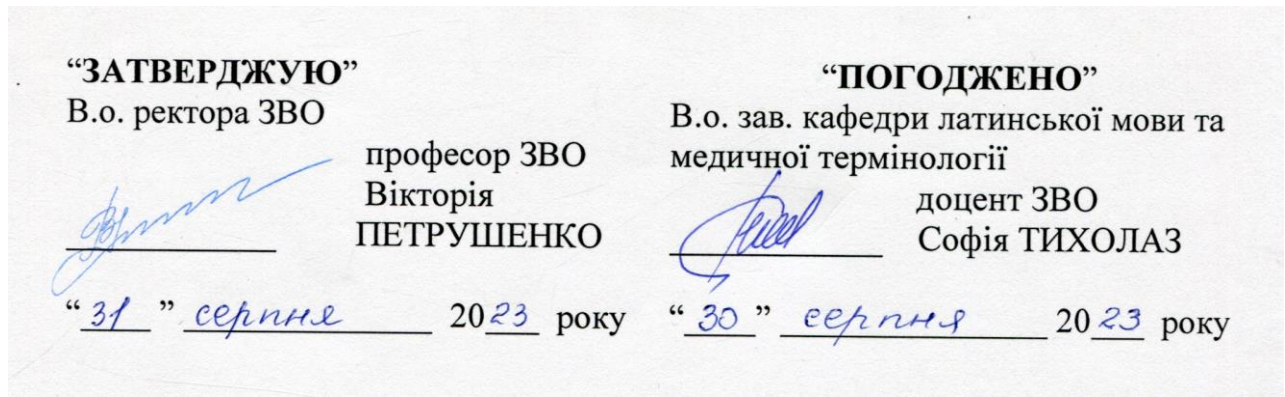 “ЗАТВЕРДЖУЮ”
В.о. ректора ЗВО
професор ЗВО
Вікторія
ПЕТРУШЕНКО
“31” серпня 2023 року
“ПОГОДЖЕНО”
В.о. зав. кафедри латинської мови та
медичної термінології
доцент ЗВО
Софія ТИХОЛАЗ
“30” серпня 2023 року